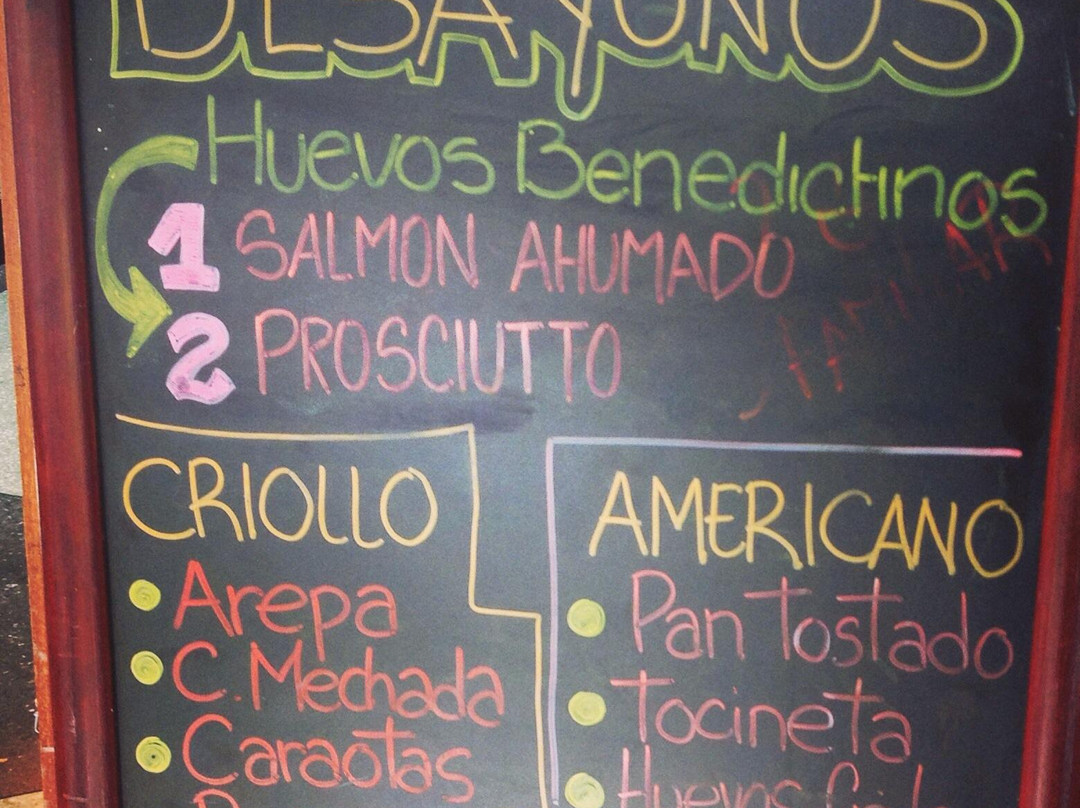 DESAYUNOS
Huevos Benedictinos
1 SALMON AHUMADO
2 PROSCIUTTO
CRIOLLO
Arepa
C. Mechada
Caraotas
AMERICANO
Pan Tostado
Tocineta
Huevos